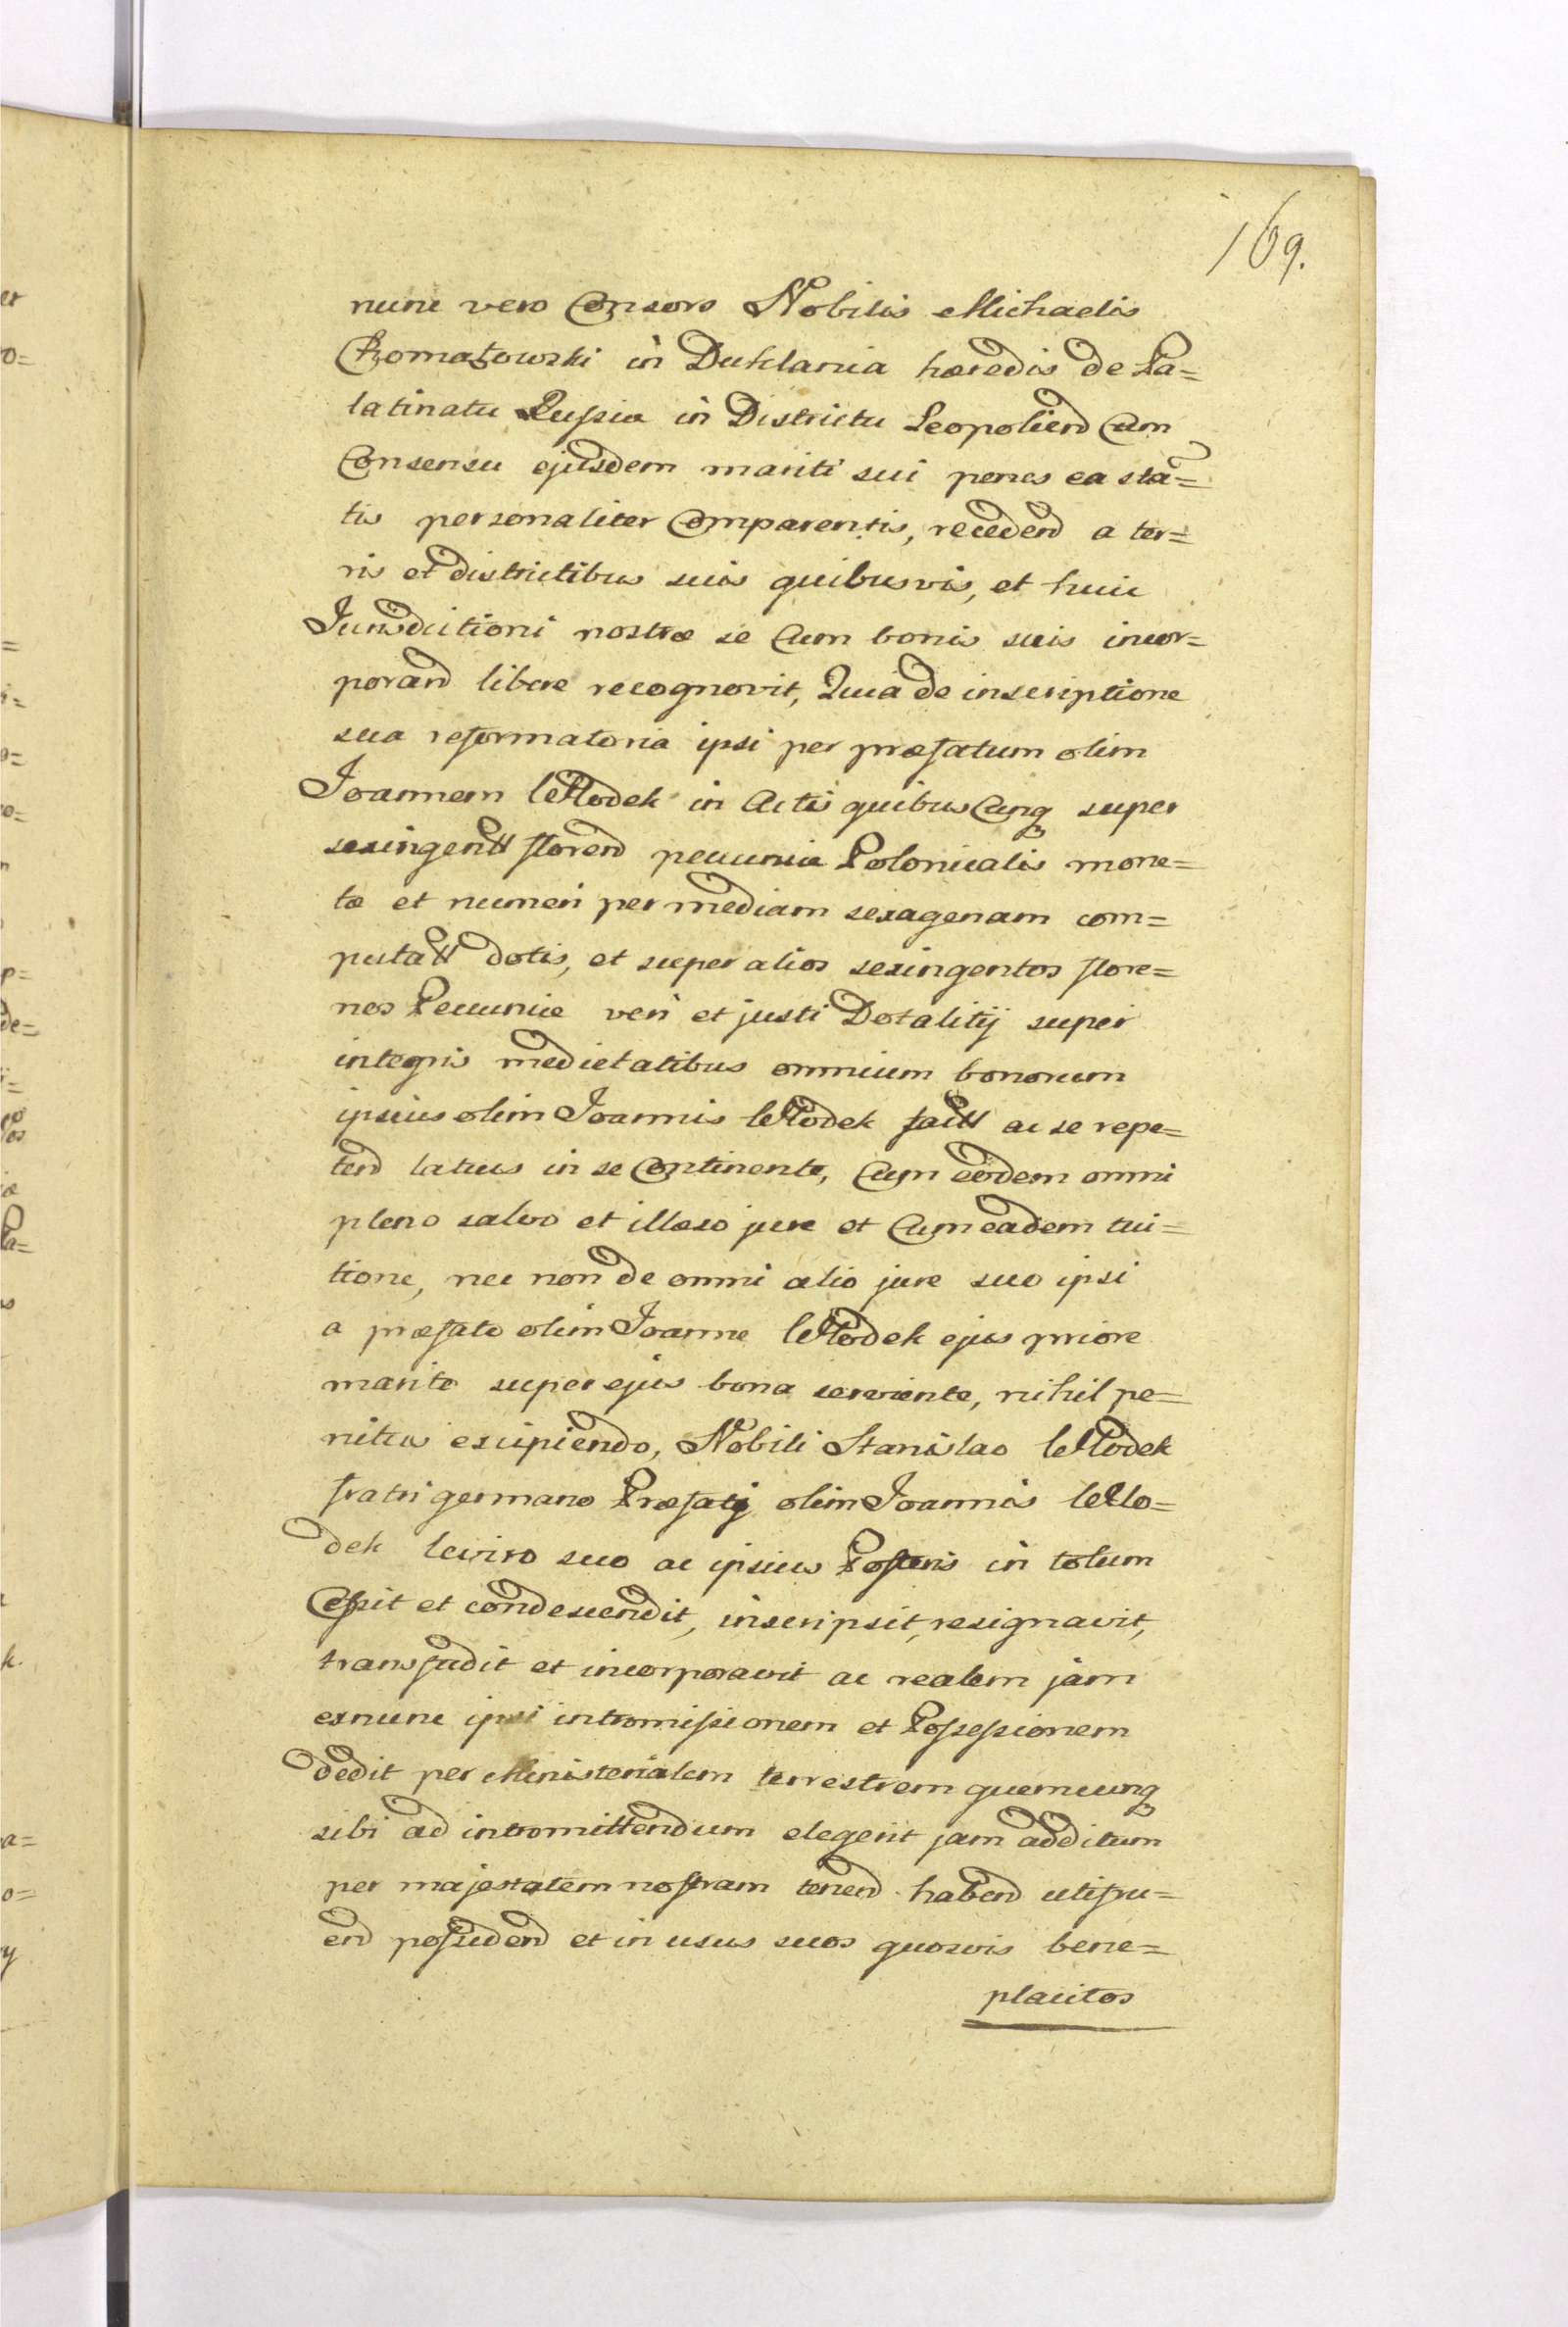 169.
nunc vero Consors Nobilis Michaelis
in Duklania haeredis de Pa=
latinatu Russiae in Districtu Leopoliend Cum
Consensu ejusdem mariti sui penes ea sta=
tis personaliter Comparentis, recedend a ter=
ris et districtibus suis quibusvis, et huic
Jurisdictioni nostrae se Cum bonis suis incor=
porand libere recognovit, Quia de inscriptione
sua reformatoria ipsi per praefatum olim
Joannem Wlodek in Actis quibus Cunq super
sexingentt florend pecuniae Polonicalis mone=
tae et numeri per mediam sexagenam com=
putatt dotis, et super alios sexingentos flore=
nos Pecuniae veri et justi Dotalitij super
integris medietatibus omnium bonorum
ipsius olim Joannis Wlodek factt ac se repe=
tend latius in se Continente, Cum eodem omni
pleno salvo et illaeso jure et Cum eadem tui=
tione, nec non de omni alio jure suo ipsi
a praefato olim Joanne Wlodek ejus priore
marito super ejus bona serviente, nihil pe=
nitus excipiendo, Nobili Stanislao Wlodek
fratri germano Praefatj olim Joannis Wlo=
dek leviro suo ac ipsius Posteris in totum
Cessit et condescendit, inscripsit, resignavit,
transfudit et incorporavit ac realem jam
exnunc ipsi intromissionem et Possessionem
dedit per Ministerialem terrestrem quemcunq
sibi ad intromittendum elegerit jam additum
per majestatem nostram tenend habend utifru=
end possidend et in usus suos quosvis bene=
placitos